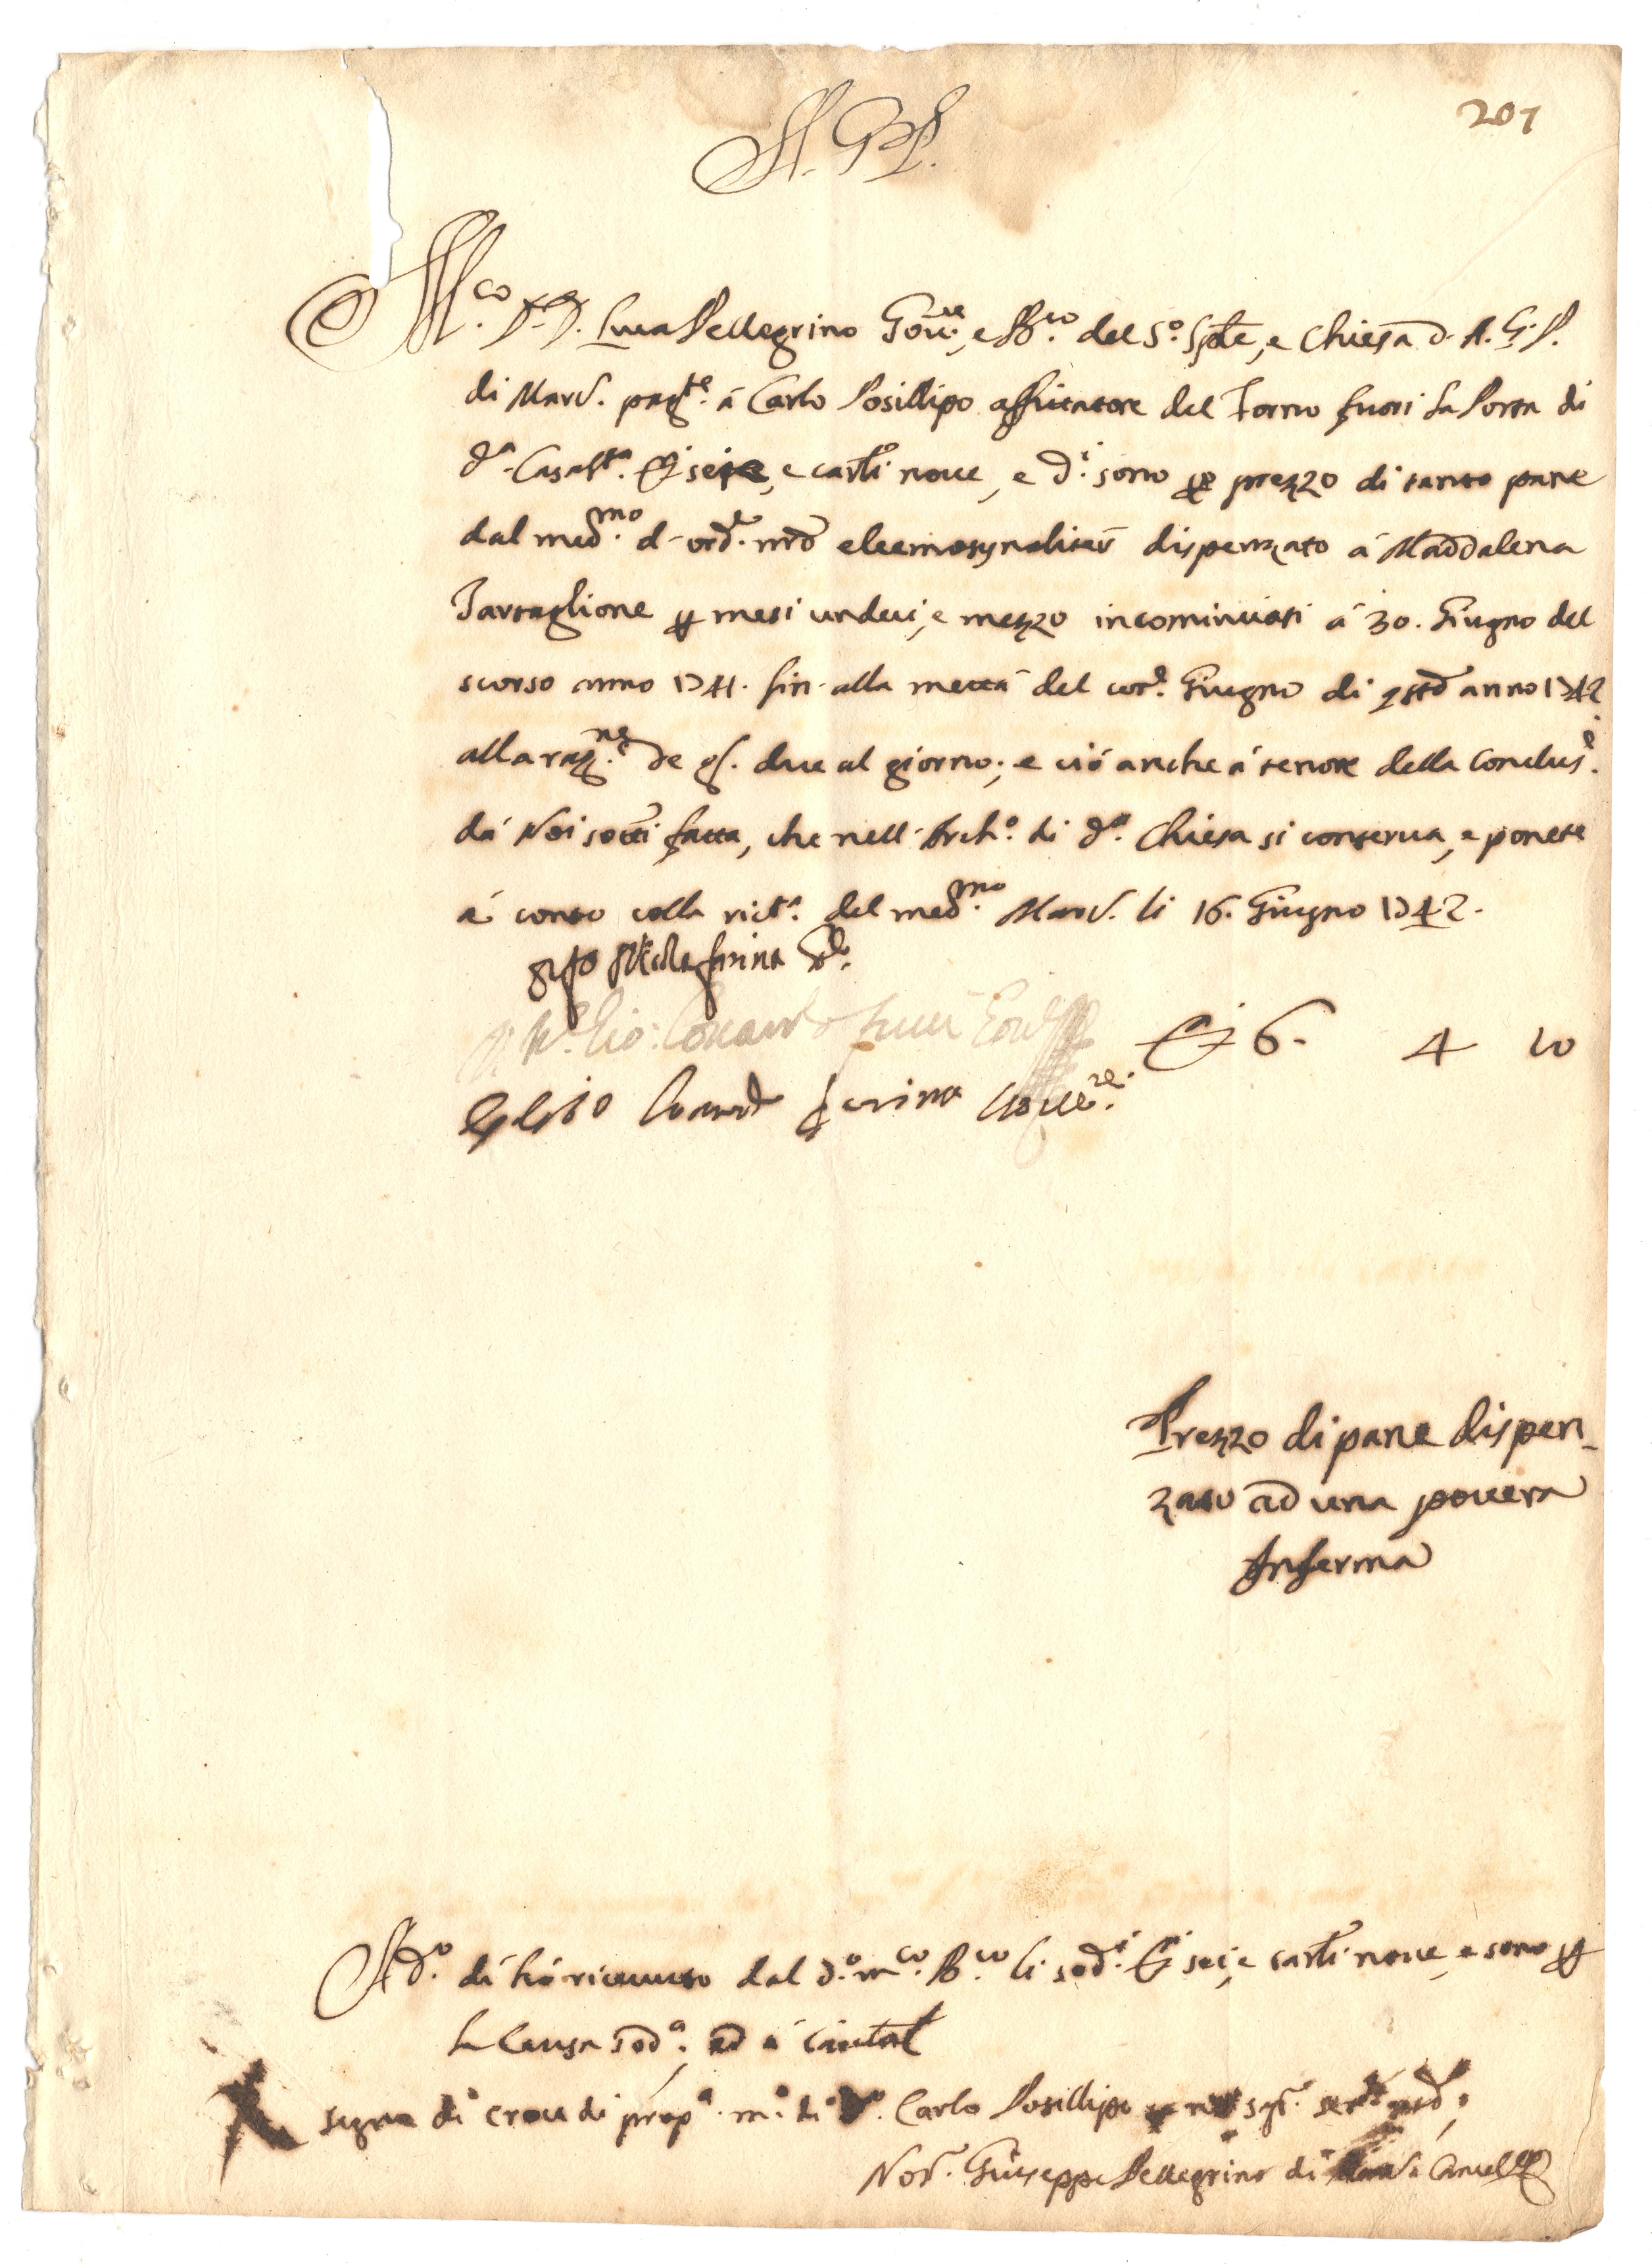 207
A. G. P.
M.co D.r D. Luca Pellegrino Gov.re, e B.co del S.o Sple, e Chiesa d. A. G. P.
di Marc. pag.te á Carlo Posillipo affittatore del Forno fuori la Porta di
d.a Casa S.ta D.i sei, e carl.i nove, e d.i sono p prezzo di tanto pane
dal med.mo d'ord.e nro eleemosynaliter dispenzato á Maddalena
Tartaglione p mesi undeci, e mezzo incominciati á 30. Giugno del
scorso anno 1741. fin alla mettá del cor.e Giugno di qsto anno 1742
alla rag.ne de g. due al giorno; e ció anche á tenore della Conclus.e
dá Noi sotti fatta, che nell'Arch.o di d.a Chiesa si conserva, e ponete
á conto colla ric.ta del med.mo Marc. li 16. Giugno 1742.
farina
D.i 6. 4 10
farina Gove.re
Prezzo di pane dispen_
zato ad una povera
Inferma
A d.o dí hó ricevuto dal d.o m.co B.co li sod.i D.i sei, e carl.i nove, e sono p
la causa sod.a, ed á cautel
X signo di croce di prop.a m.o di d.o Carlo Posillipo
Not. Giuseppe Pellegrino di